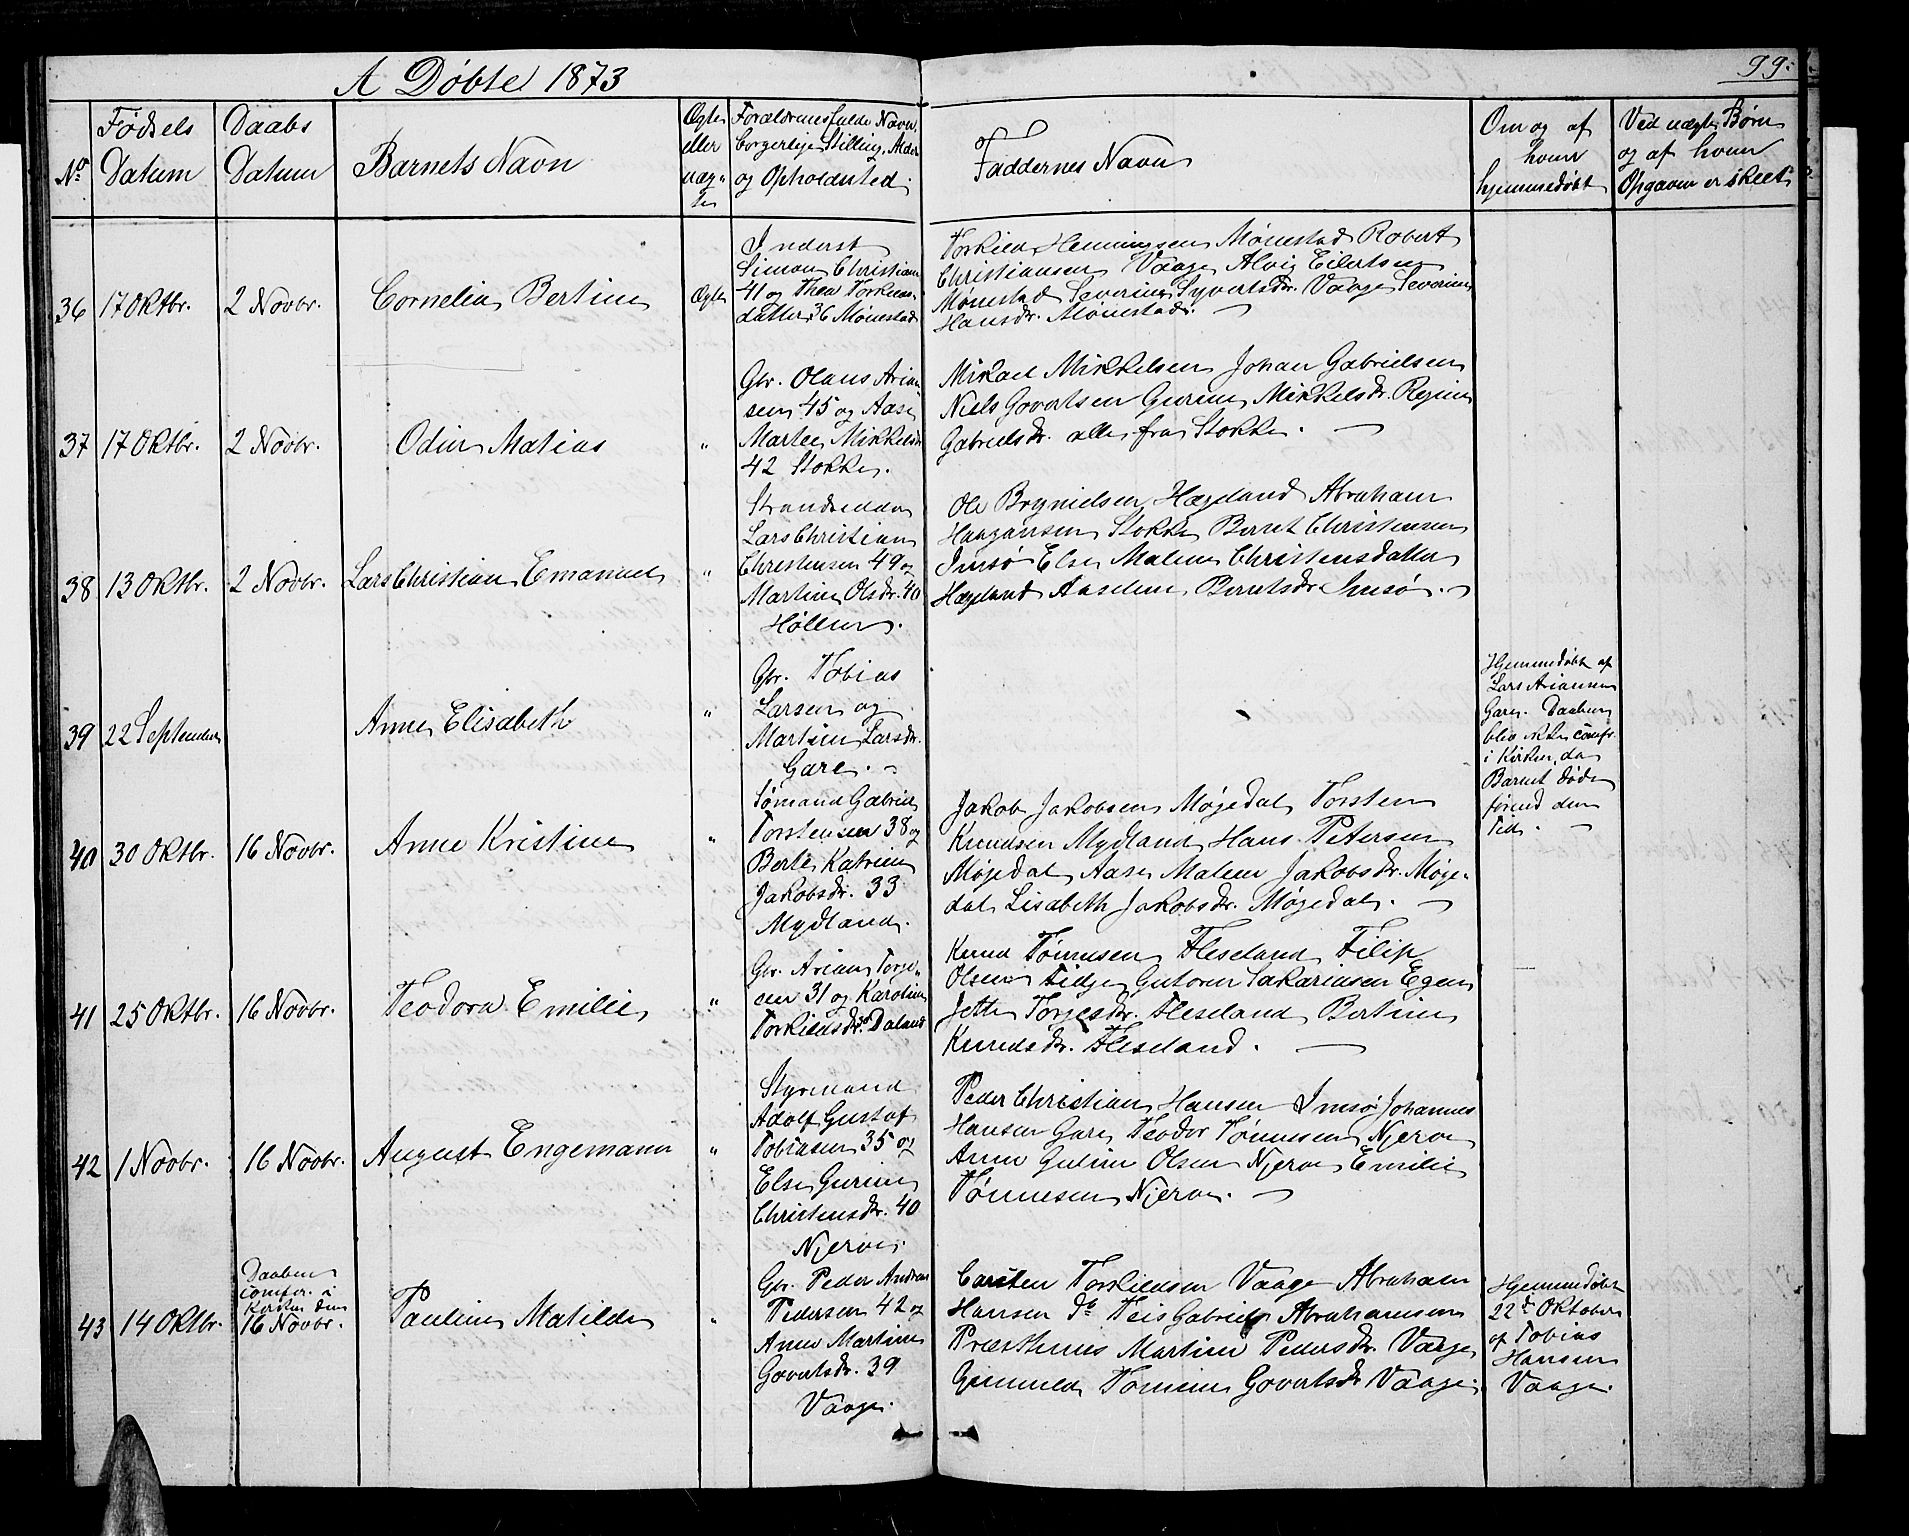 A Døbte 1873
99.
No.
Fødsels Datum
Daabs Datum
Barnets Navn
Ægte eller uægte
Forældrenes fulde Navn, borgerlige Stilling, Alder og Opholdsted.
Faddernes Navn
Om og af hvem hjemmedøbt
Ved uægte Børn og af hvem Opgaven er skeet
36
17 Oktbr.
2 Novbr.
Cornelia Bertine
Ægte
Inderst
Simon Christians
41 og Thea Torkilds
datter 36 Mønestad
Torkild Henningsen Mønestad Robert
Christiansen Vaage Alvig Eilertsen
Mønestad Severine Syvertsdr. Vaage Severine
Hansdr. Mønestad.
37
17 Oktbr.
2 Novbr.
Odin Matias
"
Gbr. Olaus Arian
sen 45 og Aase
Martee Mikkelsdr
42 Stokke.
Mikael Mikkelsen Johan Gabrielsen
Niels Govertsen Gurine Mikkelsdr. Regine
Gabrielsdr. alle fra Stokke.
38
13 Oktbr.
2 Novbr.
Lars Christian Emanuel
"
Strandsidder
Lars Christian
Christensen 49 og
Martine Olsdr. 40
Høllen.
Ole Brynielsen Hægeland Abraham
Haagansen Stokke Bernt Christensen
Imsø Else Malene Christensdatter
Hægeland Aaselene Berntsdr. Imsø.
39
22 September
Anne Elisabeth
"
Gbr. Tobias
Larsen og
Martine Larsdr.
Gare.
Hjemmedøbt af
Lars Ariansen
Gare. Daaben
blev ikke comfr.
i Kirken, da
Barnet døde
førend den
Tid.
40
30 Oktbr.
16 Novbr.
Anne Kristine
"
Sømand Gabriel
Torstensen 38 og
Berte Katrine
Jakobsdr. 33
Mydland.
Jakob Jakobsen Møgedal Torsten
Knudsen Mydland Hans Petersen
Møgedal Aase Malene Jakobsdr. Møge-
dal Lisabeth Jakobsdr. Møgedal.
41
25 Oktbr.
16 Novbr.
Teodora Emilie
"
Gbr. Arian Torje-
sen 31 og Karoline
Torkildsdr. Daland
Knud Tønnesen Fleseland Filip
Olsen Tidge Gutorm Sakariasen Egen
Jette Torjesdr. Fleseland Bertine
Knudsdr. Fleseland.
42
1 Novbr.
16 Novbr.
August Engemann
"
Styrmand
Adolf Gustaf
Tobiasen 35 og
Else Gurine
Christensdr. 40
Njerve.
Peder Christian Hansen Imsø Johannes
Hansen Gare Teodor Tønnesen Njerve
Anne Guline Olsen Njerve Emilie
Tønnesen Njerve.
43
14 Oktbr.
Daaben
comfr. i
Kirken den
16 Novbr.
Pauline Matilde
"
Gbr. Peder Andreas
Pedersen 42 og
Anne Martine
Govertsdr. 39
Vaage.
Carsten Torkildsen Vaage Abraham
Hansen do Teis Gabriel Abrahamsen
Præsthuus Martine Pedersdr. Vaage
Gunnuld Tomine Govertsdr Vaage.
Hjemmedøbt
22de Oktober
af Tobias
Hansen
Vaage.